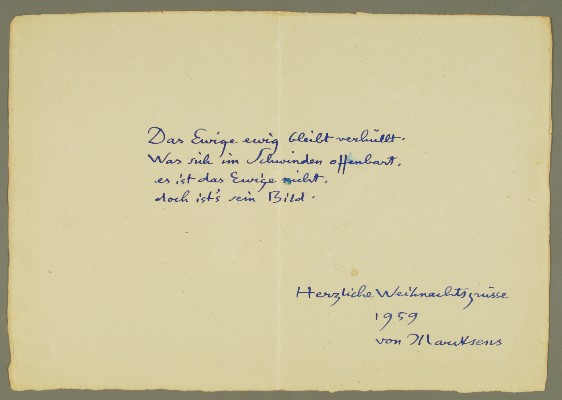 Das Ewige ewig bleibt verhüllt.
Was sich im Schwinden offenbart,
es ist das Ewige nicht,
doch ist's sein Bild.
Herzliche Weihnachtsgrüsse
1959
von